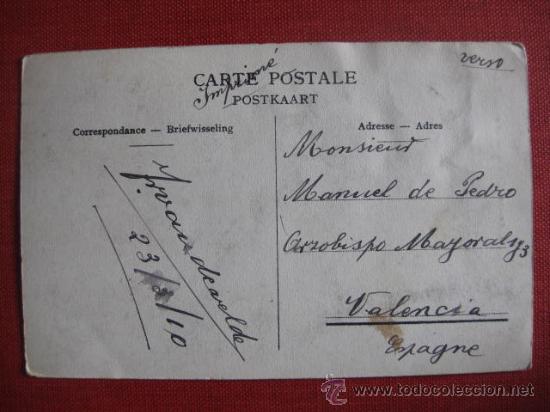 verso
Imprimé
CARTE POSTALE
POSTKAART
Correspondance — Briefwisseling
Adresse — Adres
Monsieur
Manuel de Pedro
Arzobispo Mayoral
Valencia
Espagne
vandevelde
23/3/10
© todocoleccion.net
www.todocoleccion.net